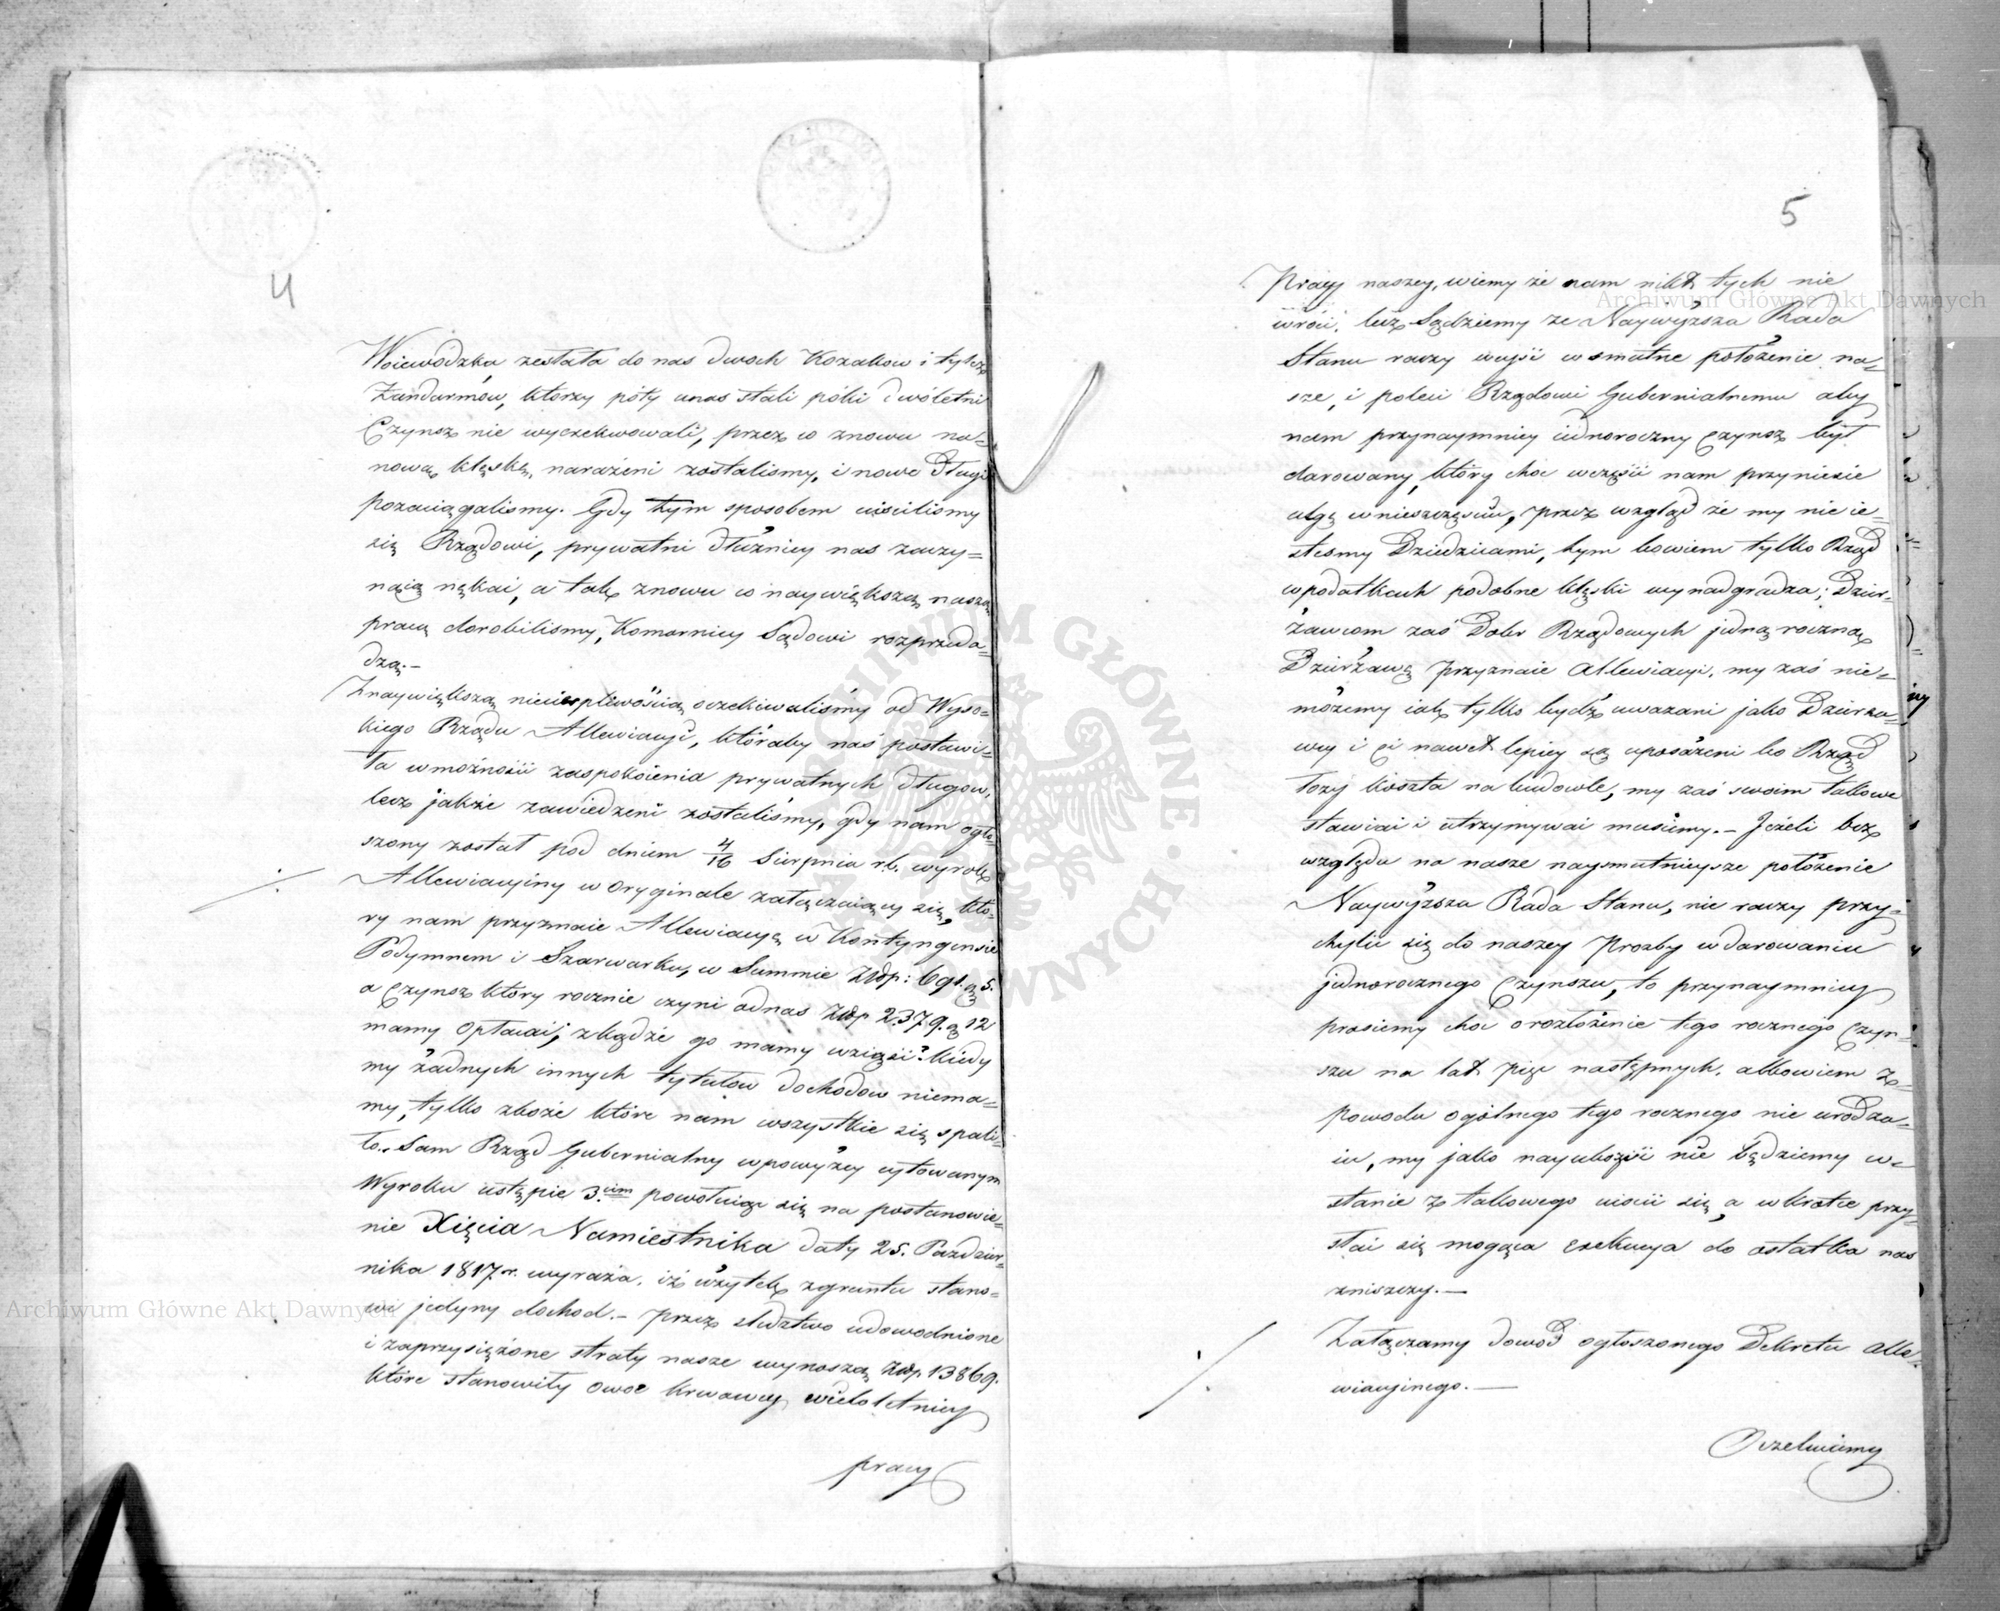 4
Woiewódzka zesłała do nas dwoch Kozakow i tyleż
Żandarmów, ktorzy póty unas stali póki dwóletni
Czynsz nie wyexekwowali, przez co znowu na
nową klęskę, narażeni zostalismy, i nowe Długi
pozaciągalismy. Gdy tym sposobem uiscilismy
się Rządowi, prywatni dłużnicy nas zaczy=
naią nękać, a tak znowu co naywiększą naszą
pracą dorobilismy, Komornicy Sądowi rozprzeda=
dzą.–
Znaywiększą niecierpliwością oczekiwalismy od Wyso=
kiego Rządu Allewiacyi, któraby nas postawi=
ła wmożności zaspokoienia prywatnych długow,
lecz jakże zawiedzeni zostalismy, gdy nam ogło=
szony został pod dniem 4/16 Sierpnia r.b. wyrok
Allewiacyiny w oryginale załączaiący się, kto=
ry nam przyznaie Allewiacyą w Kontyngensie
Podymnem i Szarwarku, w Summie Złp: 6 gr. 5.
a Czynsz który rocznie czyni od nas Złp 237 g. 12
mamy opłacać; zkądże go mamy wziąść? kiedy
my żadnych innych tytułow dochodow niema=
my, tylko zboże które nam wszystkie się spali=
ło. Sam Rząd Gubernialny wpowyżey cytowanym
Wyroku ustępie 3.cim powołuiąc się na postanowie=
nie Xięcia Namiestnika daty 25. Pazdzier=
nika 1817 r. wyraża, iż użytek zgruntu stano=
wi jedyny dochod.– Przez sledztwo udowodnione
i zaprzysiężone straty nasze wynoszą Złp. 13869.
które stanowiły owoc krwawey wieloletniey
pracy
5
Pracy naszey, wiemy że nam nikt tych nie
wróci, lecz Sądziemy ze Naywyższa Rada
Stanu raczy wejść w smutne położenie na=
sze, i poleci Rządowi Gubernialnemu aby
nam przynaymniey iednoroczny Czynsz był
darowany, który choc wczęści nam przyniesie
ulgę w nieszczęściu, przez wzgląd że my nie ie=
stesmy Dziedzicami, tym bowiem tylko Rząd
wpodatkach podobne klęski wynadgradza; Dzier=
żawcom zaś Dobr Rządowych jedną roczną
Dzierżawę przyznaie Allewiacyi, my zaś nie=
możemy iak tylko bydź uwazani jako Dzierza=
wcy i ci nawet lepiey są uposażeni bo Rząd
łozy koszta na budowle, my zaś swoim takowe
stawiać i utrzymywać musiemy.– Jeżeli bez
względu na nasze naysmutnieysze położenie
Naywyższa Rada Stanu, nie raczy przy=
chylić się do naszey Prozby w darowaniu
jednorocznego Czynszu, to przynaymniey
prosiemy choc o rozłożenie tego rocznego Czyn=
szu na lat pięc następnych, albowiem z
powodu ogólnego tego rocznego nie urodza=
iu, my jako nayubożsi nie będziemy w
stanie z takowego uiscić się, a wkrotce przy=
stać się mogąca exekucya do ostatka nas
zniszczy.—
Załączamy dowod ogłoszonego Dekretu Alle=
wiacyinego.—
Oczekuiemy
Archiwum Główne Akt Dawnych
Archiwum Główne Akt Dawnych
ARCHIWUM GŁÓWNE AKT DAWNYCH